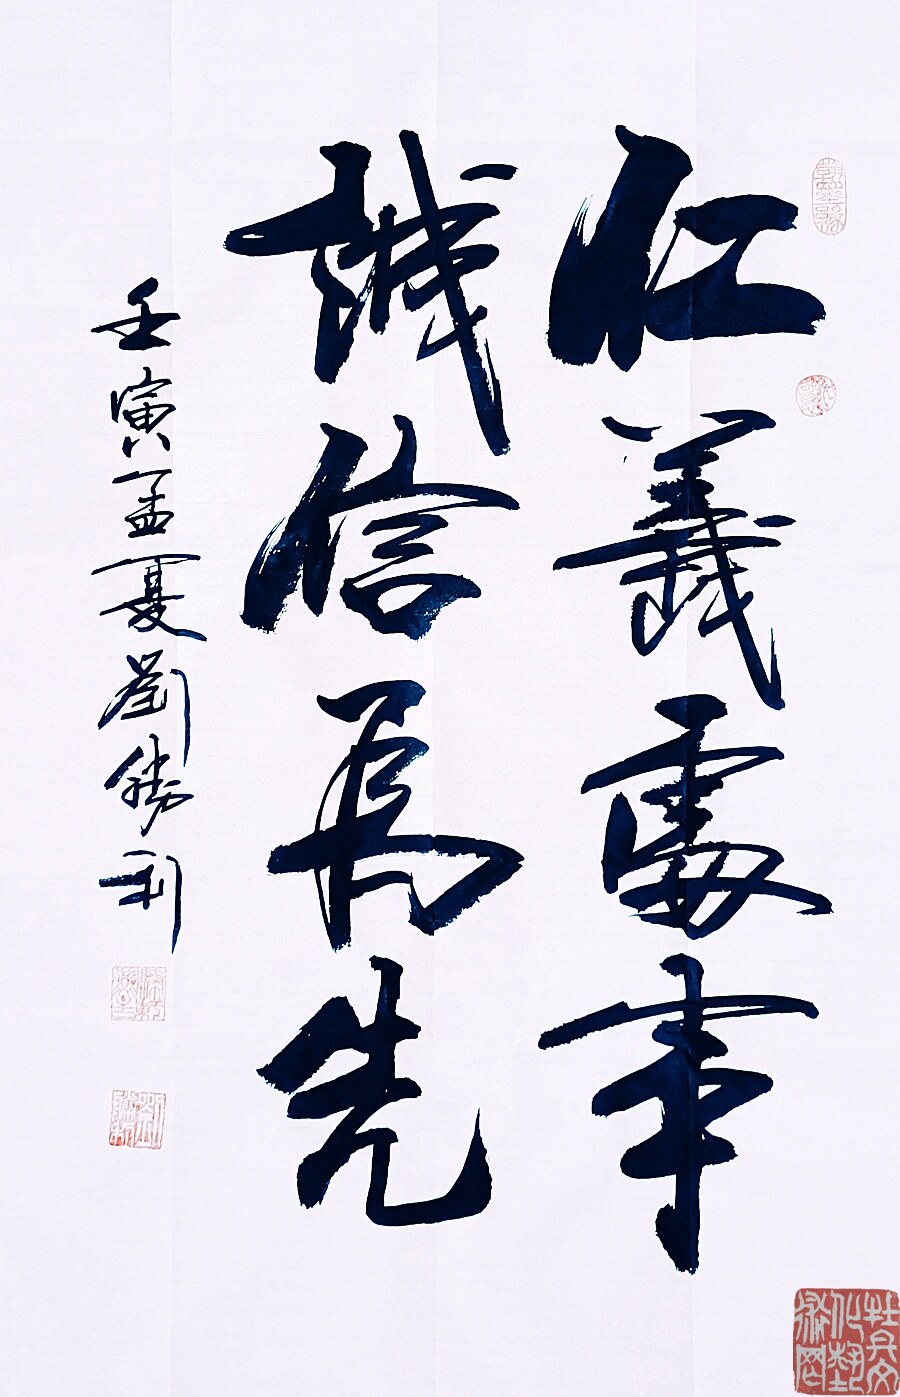 仁義處事
誠信為先
壬寅孟夏劉勝利